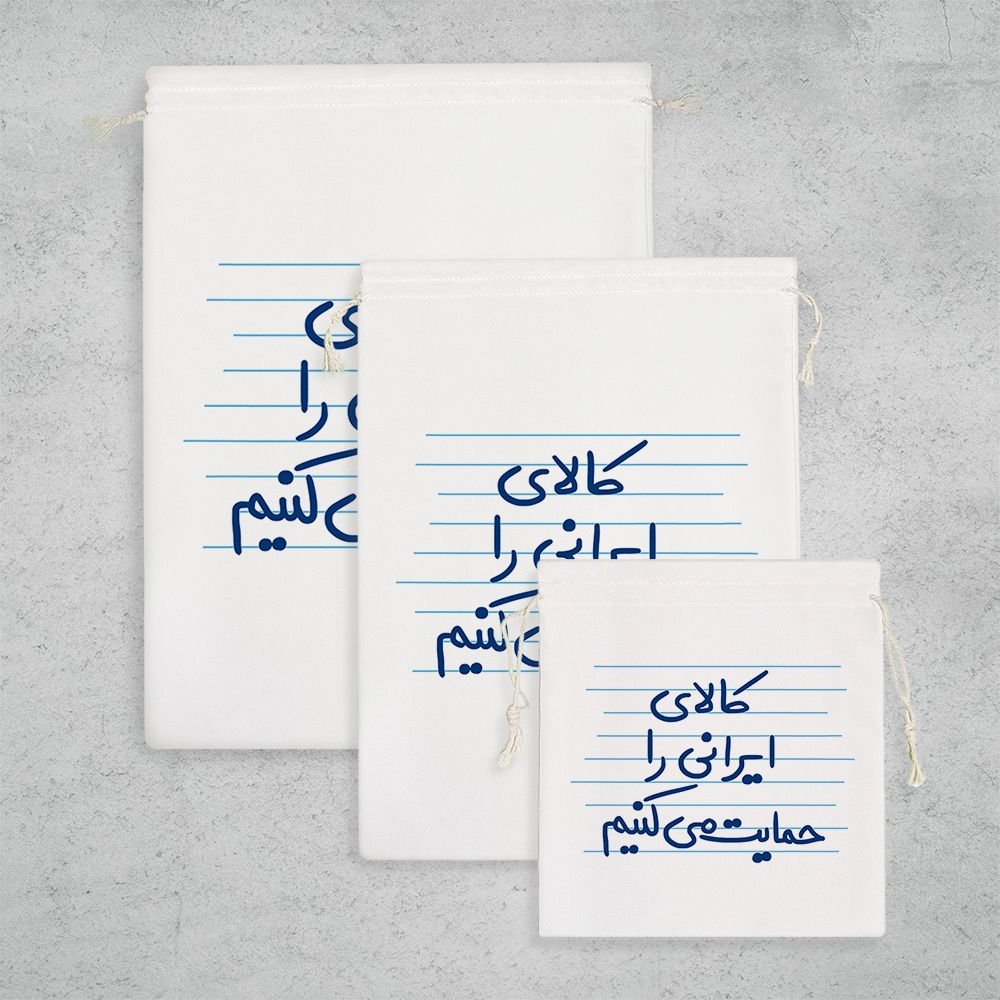 را
کنیم
کالای
ایرانی را
کنیم
کالای
ایرانی را
حمایت می کنیم